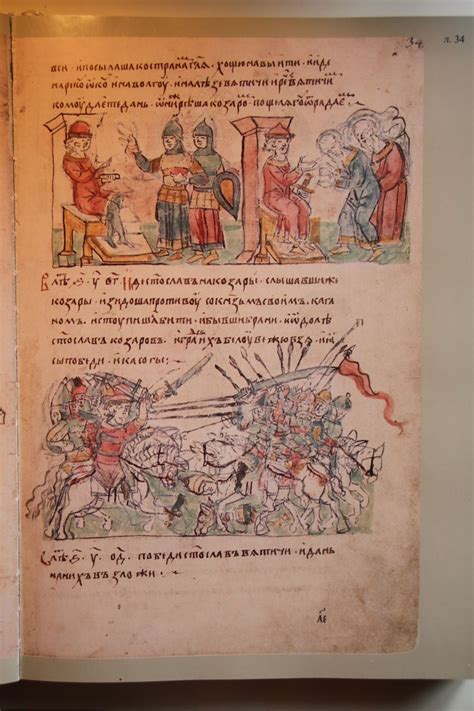 34
л. 34
вси · и посылаше к странам гл҃я · хощю на вы ити · и иде
на рекоу ѡкоу и на волгоу · и налѣзе вятичи и реч вятичи
комоу даете дань · ѡни ж рѣша козаром по щеляго ѿ рала даем
В лѣт ҂ѕ · у · о҃г · Иде стослав на козары · слышавши же
козары · изидоша противоу со кнзьмъ своим кага
ном · и стоупишѧ бити · и бывши брани · ѡдолѣ
стослав козаров · и град ихъ белоу вежю взя · и ꙗ
сы победи · и касогы ·
В лѣт ҂ѕ · у · о҃д · победи стославъ вятичи · и дань
на них възложи ·